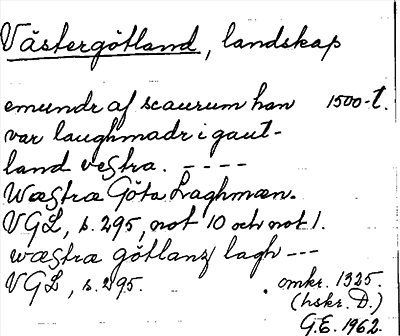 Västergötland, landskap
emundr af scaurum han 1500-t.
var laughmadr i gaut-
land vestra. ----
Wæstræ Göta Laghmæn.
VGL, s. 295, not 10 och not 1.
wæstræ götlanz lagh ---
VGL, s. 295. omkr. 1325.
(hskr. D.)
G.E. 1962.